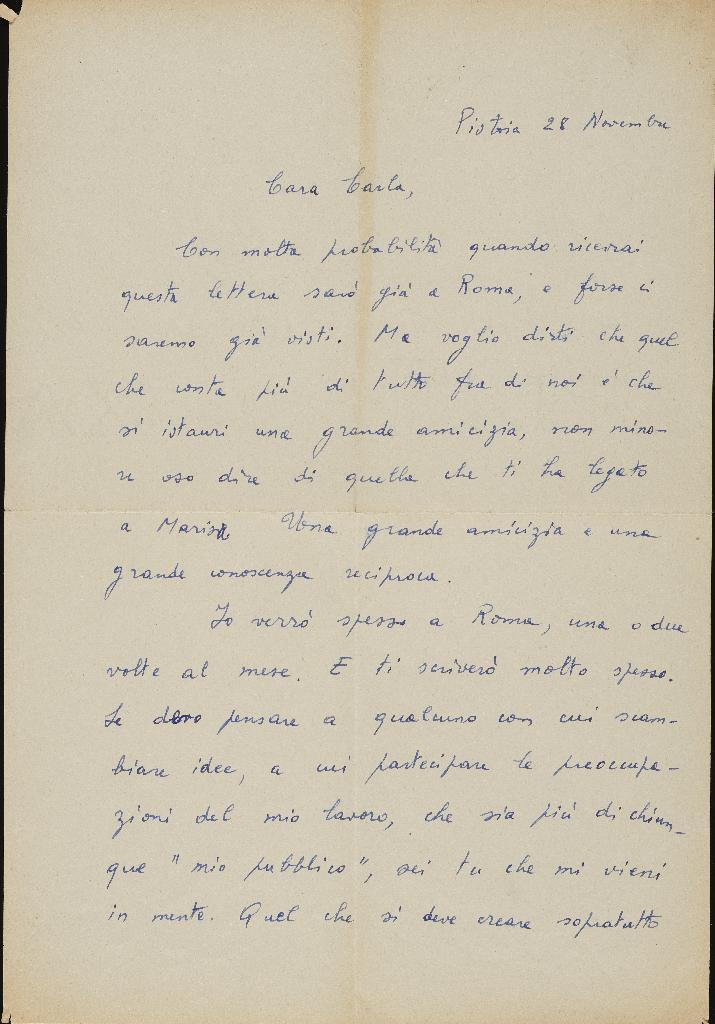 Pistoia 28 Novembre
Cara Carla,
Con molta probabilità quando riceverai
questa lettera sarò già a Roma, e forse ci
saremo già visti. Ma voglio dirti che quel
che conta più di tutto fra di noi è che
si istauri una grande amicizia, non mino-
re oso dire di quella che ti ha legato
a Marisa. Una grande amicizia e una
grande conoscenza reciproca.
Io verrò spesso a Roma, una o due
volte al mese. E ti scriverò molto spesso.
Se devo pensare a qualcuno con cui scam-
biare idee, a cui partecipare le preoccupa-
zioni del mio lavoro, che sia più di chiun-
que "mio pubblico", sei tu che mi vieni
in mente. Quel che si deve creare sopratutto